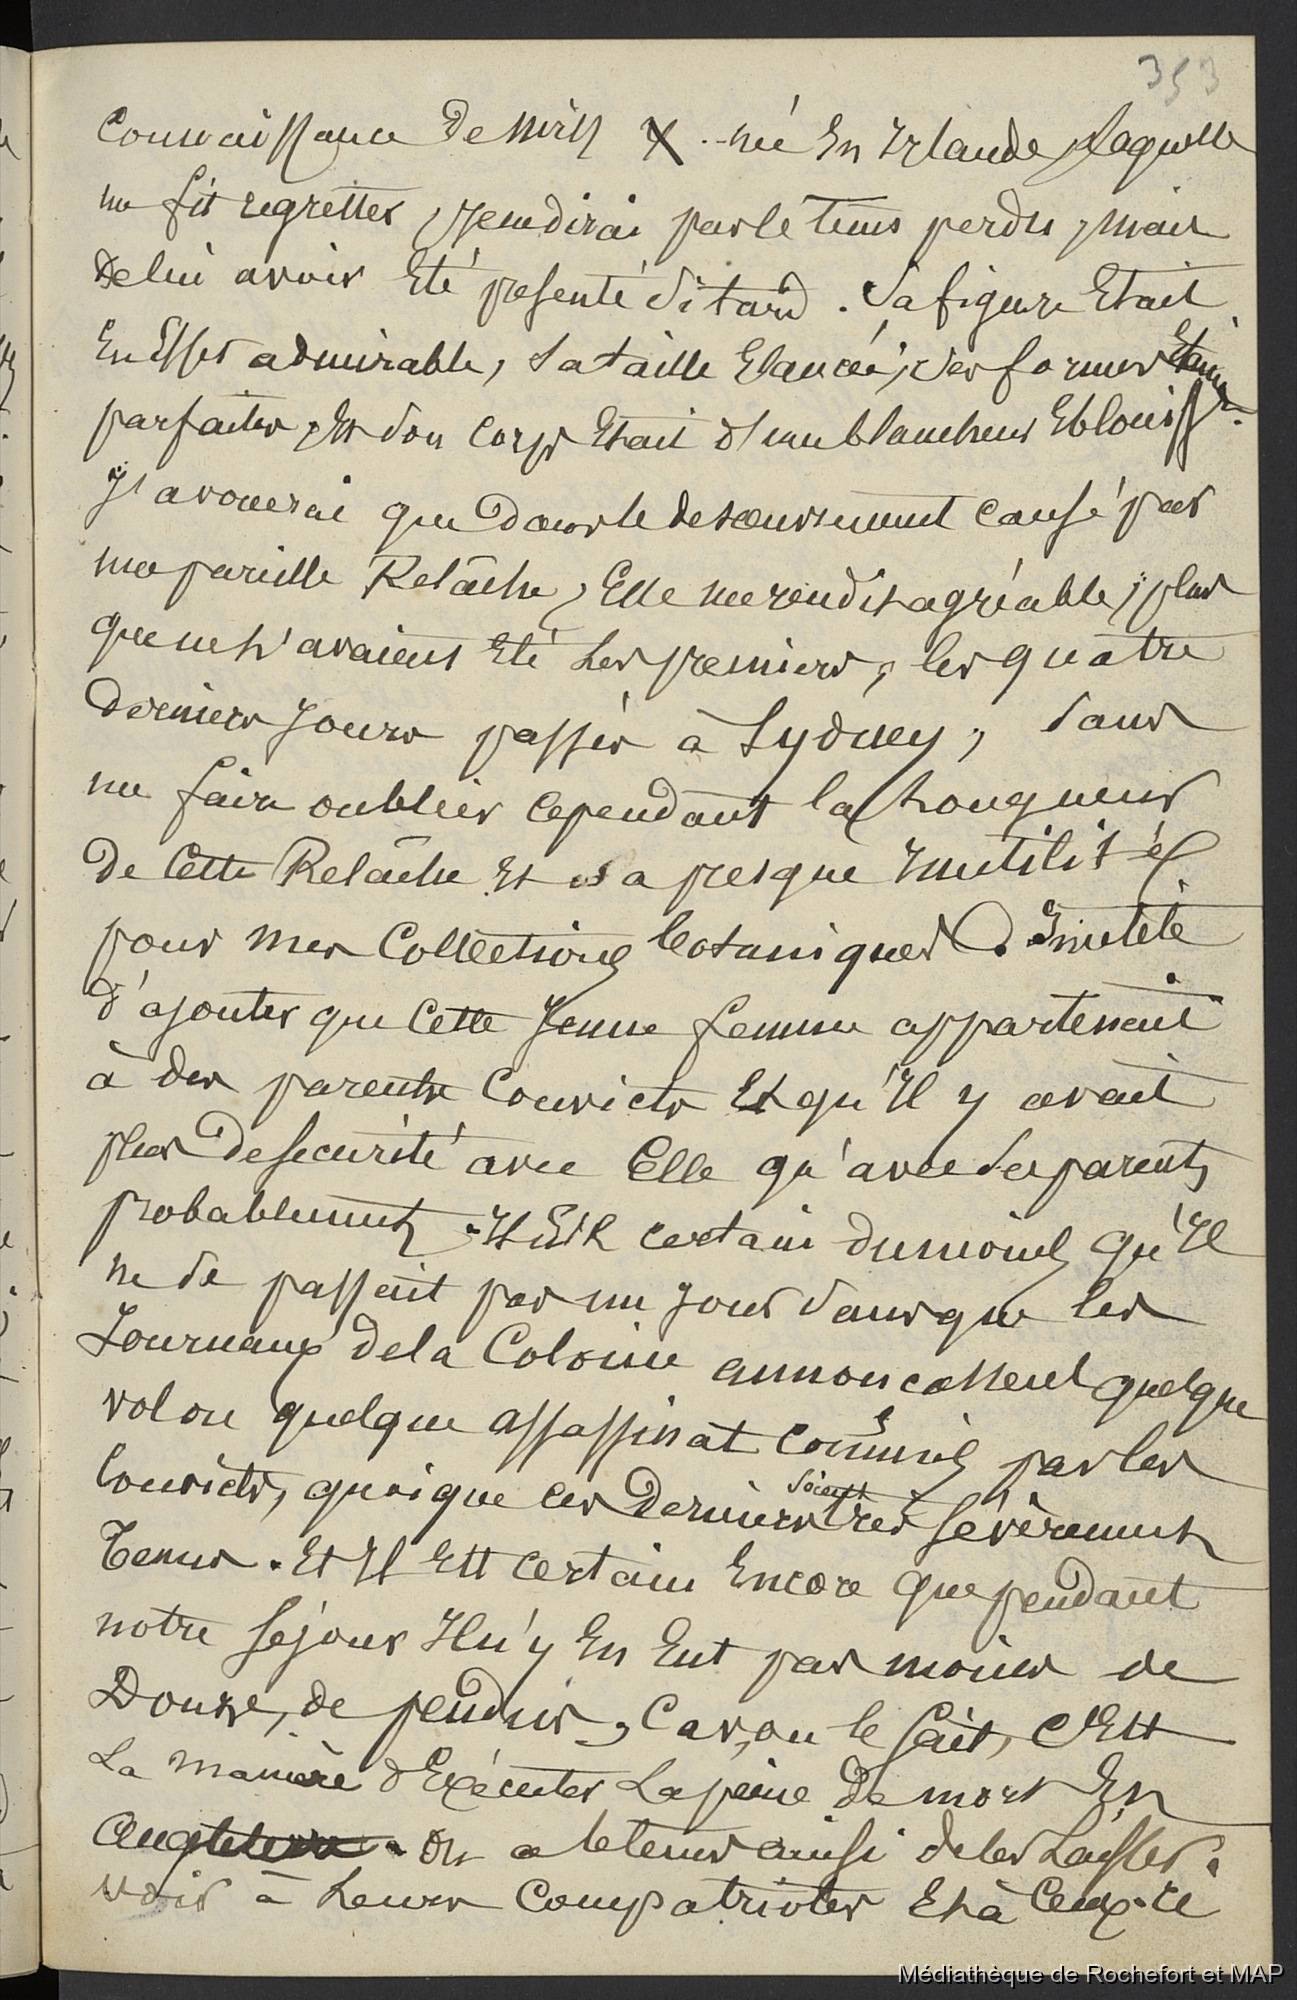 353
Connaissance de Miss X .. née En Irlande, laquelle
me fit regretter, je ne dirai pas le tems perdu, mais
de lui avoir Eté présenté si tard. Sa figure Etait
En Effet admirable, sa taille Elancée, ses formes Etaient
parfaites, Et son corps Etait d'une blancheur Eblouiss.
J'avouerai que dans le desoeuvrement causé par
une pareille Relâche, Elle me rendit agréable, plus
que ne l'avaient Eté les premiers, les quatre
derniers jours passés à Sydney, sans
me faire oublier cependant la longueur
de cette Relâche Et sa presque inutilité
pour mes Collections botaniques. Inutile
d'ajouter que cette Jeune femme appartenait
à des parents Convicts Et qu'Il y avait
plus de securité avec Elle qu'avec ses parents
probablement. Il Est certain du moins qu'Il
ne se passait pas un jour sans que les
Journaux de la Colonie annoncassent quelque
vol ou quelque assassinat commis par les
Convicts, quoique ces derniers soient très sévèrement
Tenus. Et Il Est certain Encore que pendant
notre séjour Il n'y En Eut pas moins de
Douze, de pendus, Car, on le sait, c'Est
La manière d'Exécuter La peine de mort En
Angleterre. On a le tems ainsi de les Laisser
voir à Leurs Compatriotes Et à Ceux-ci
Médiathèque de Rochefort et MAP